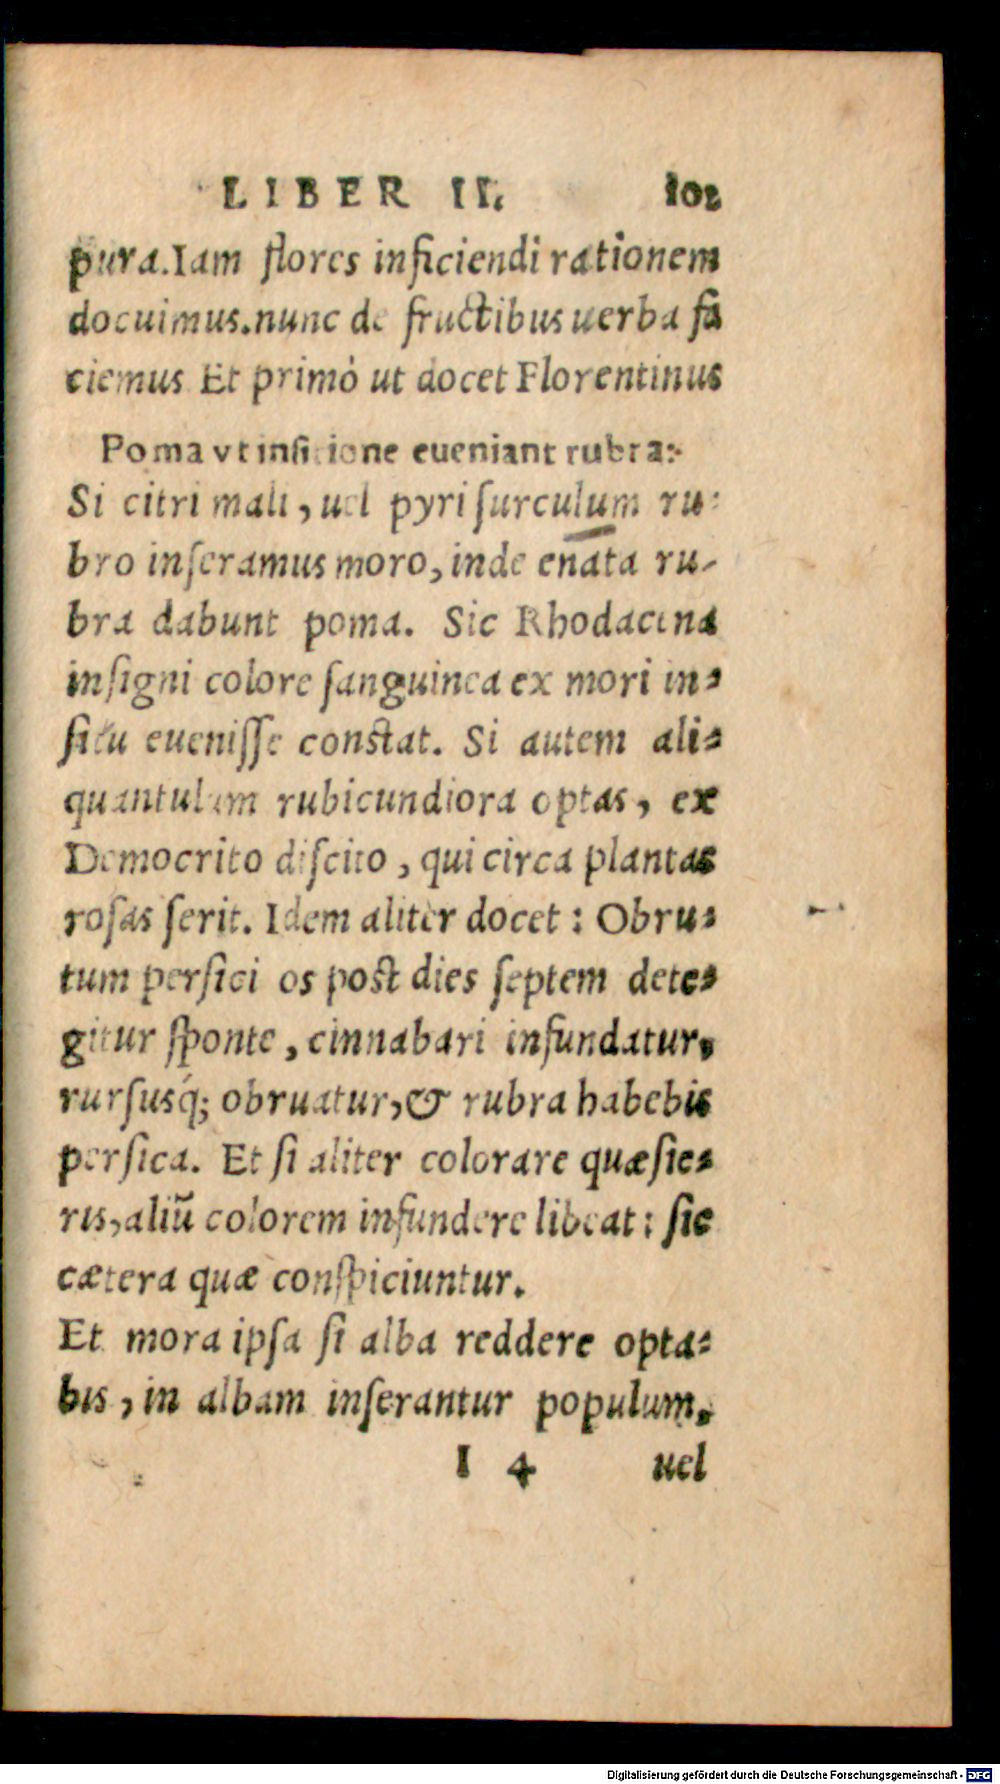 LIBER II. 102
pura. Iam flores inficiendi rationem
docuimus. nunc de fructibus uerba fa
ciemus Et primò ut docet Florentinus
Poma vt insitione eueniant rubra:
Si citri mali, uel pyri surculum ru-
bro inseramus moro, inde enata ru-
bra dabunt poma. Sic Rhodacina
insigni colore sanguinea ex mori in-
situ euenisse constat. Si autem ali-
quantulum rubicundiora optas, ex
Democrito discito, qui circa plantas
rosas serit. Idem aliter docet: Obru-
tum persici os post dies septem dete-
gitur sponte, cinnabari infundatur,
rursusq́; obruatur, & rubra habebis
persica. Et si aliter colorare quæsie-
ris, aliū colorem infundere libeat: sic
cætera quæ conspiciuntur.
Et mora ipsa si alba reddere opta-
bis, in albam inserantur populum,
I 4 uel
Digitalisierung gefördert durch die Deutsche Forschungsgemeinschaft - DFG